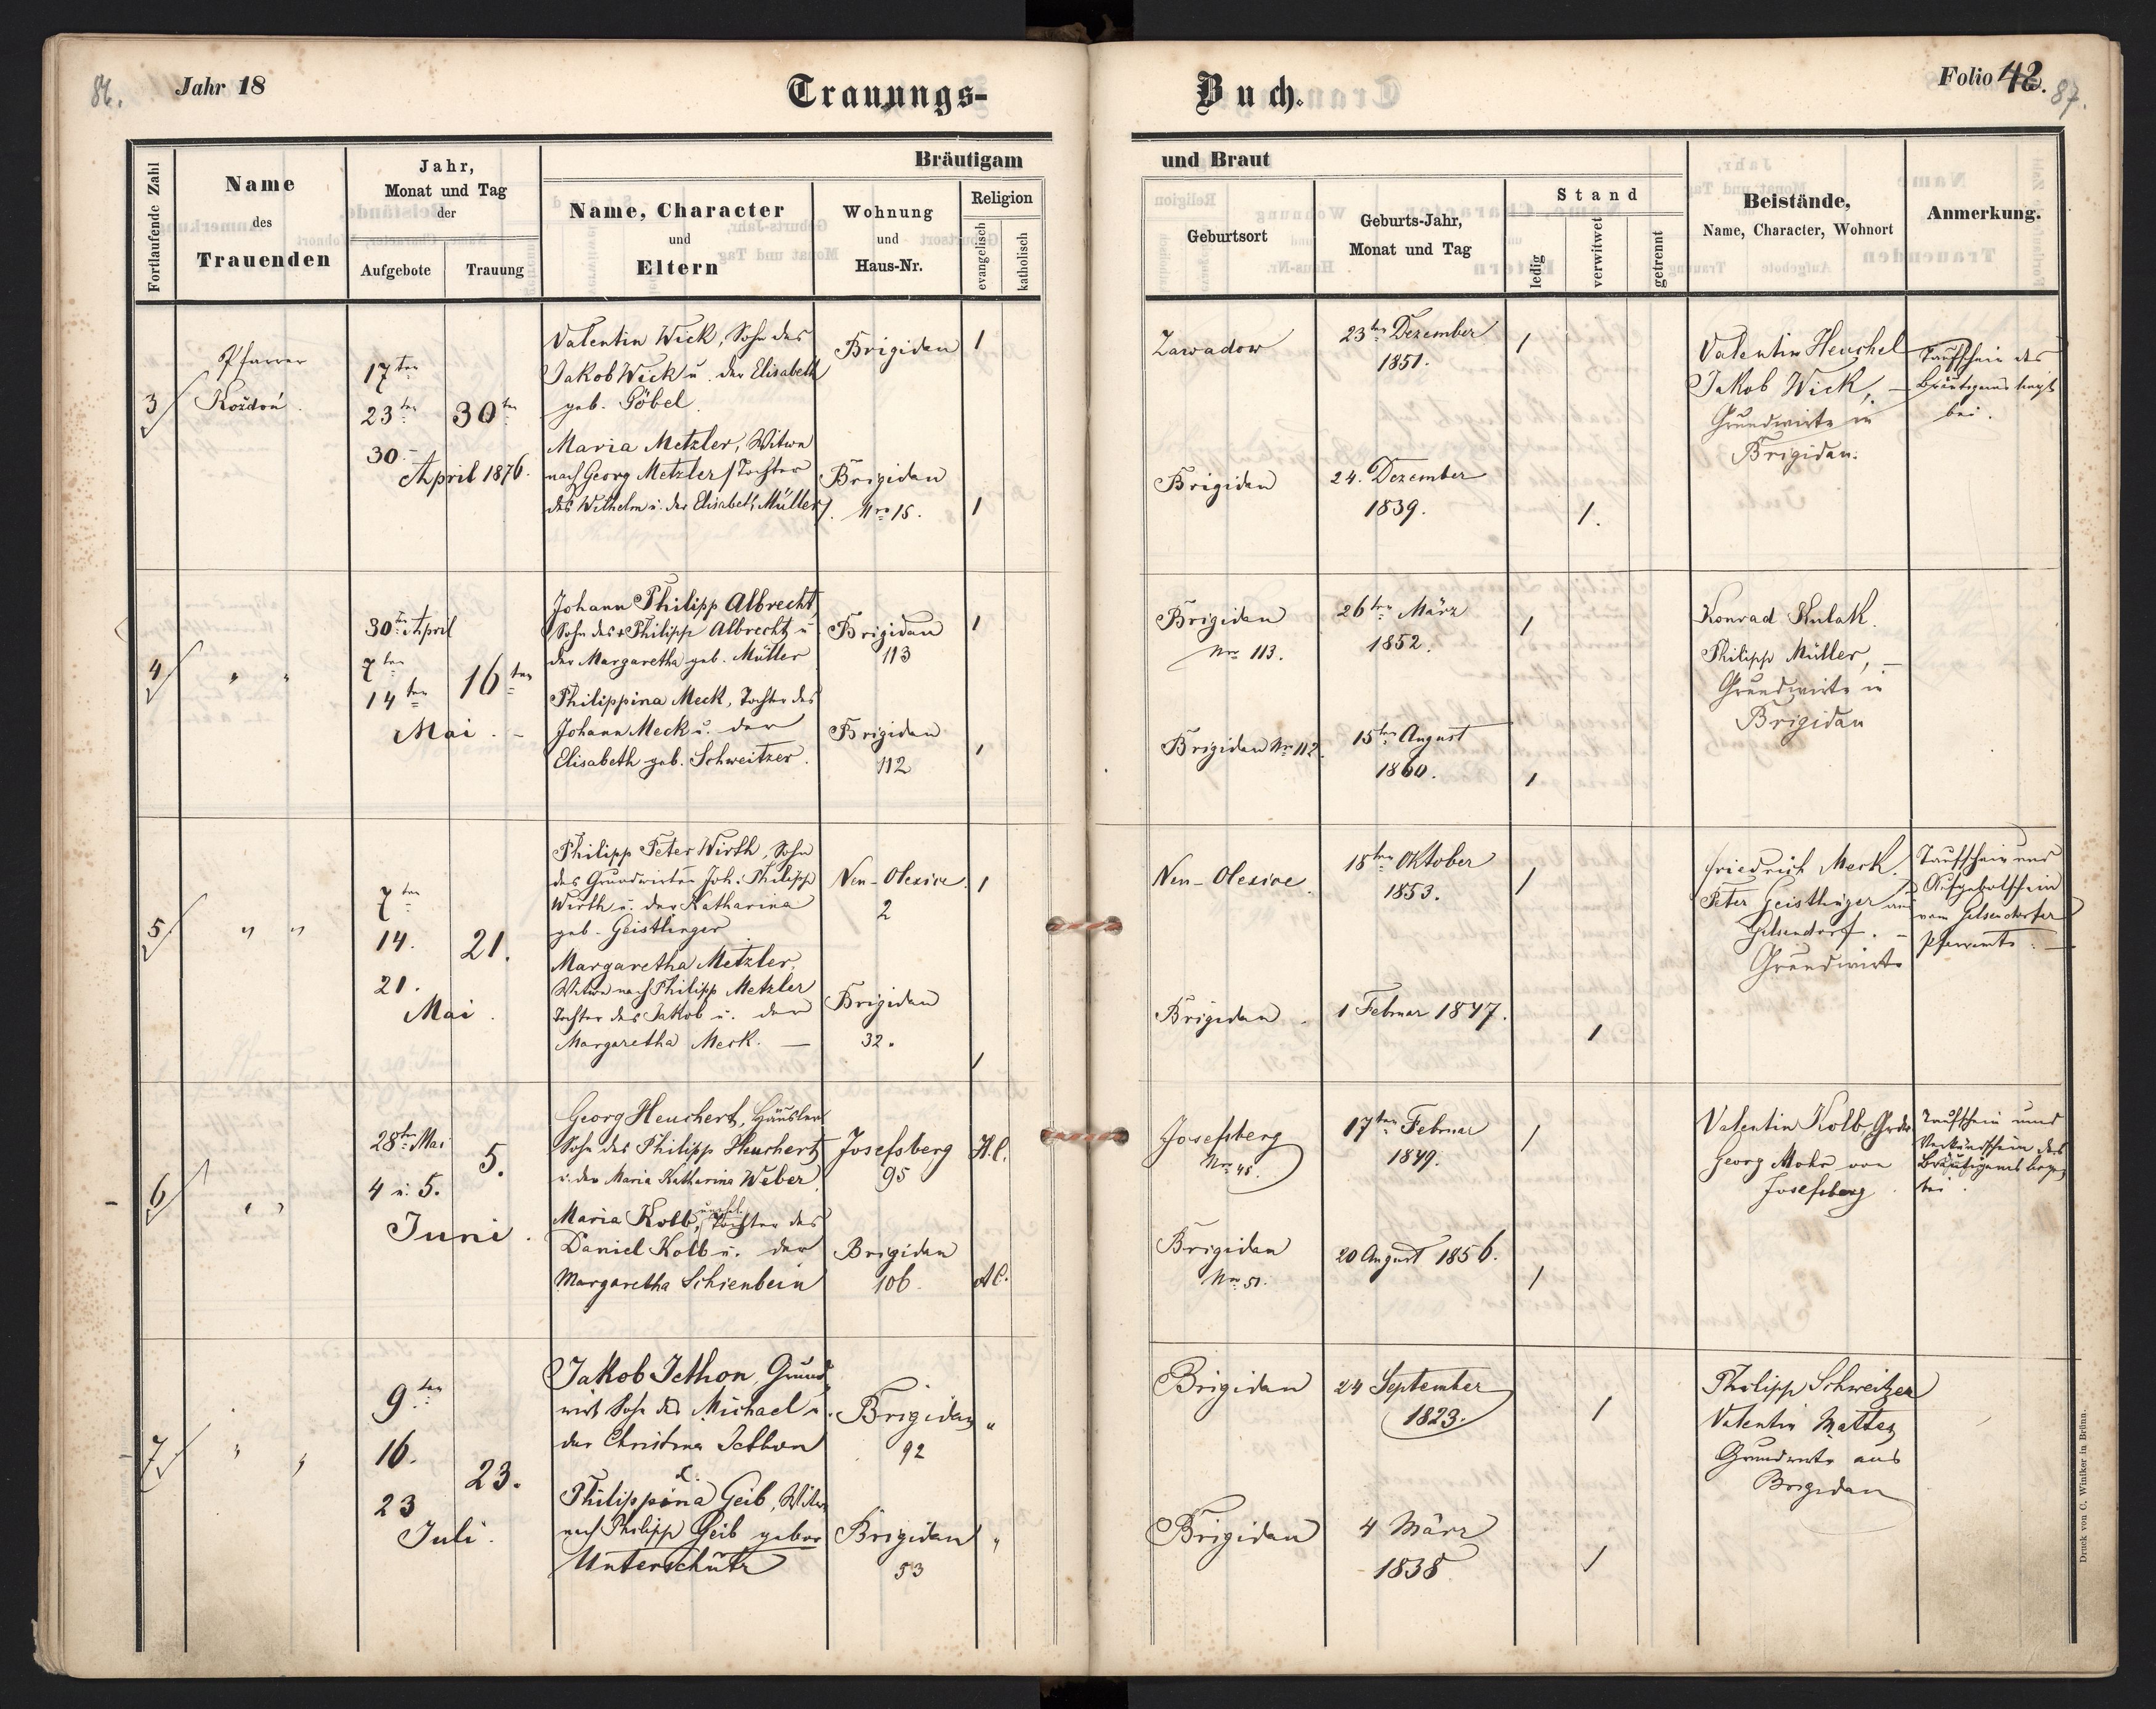 86.
Jahr 18
Trauungs-
Buch.
Folio 42.
87.
Fortlaufende Zahl
Name
des
Trauenden
Jahr,
Monat und Tag
der
Aufgebote
Trauung
Bräutigam
Name, Character
und
Eltern
Wohnung
und
Haus-Nr.
Religion
evangelisch
katholisch
und Braut
Geburtsort
Geburts-Jahr,
Monat und Tag
Stand
ledig
verwitwet
getrennt
Beistände,
Name, Character, Wohnort
Anmerkung.
3
Pfarrer
Koždoń.
17ten
23ten
30.
April 1876.
30ten
Valentin Wick, Sohn des
Jakob Wick u. der Elisabeth
geb. Göbel.
Brigidau
1
Zawadow
23ten Dezember
1851.
1
Maria Metzler, Witwe
nach Georg Metzler / Tochter
des Wilhelm u. der Elisabeth Müller /.
Brigidau
Nro 15.
1
Brigidau
24. Dezember
1839.
1.
Valentin Heuchel
Jakob Wick, –
Grundwirte in
Brigidau.
Taufschein des
Bräutigams liegt
bei.
4
" "
30ten April
7ten
14ten
Mai. –
16ten
Johann Philipp Albrecht,
Sohn des + Philipp Albrecht u.
der Margaretha geb. Müller
Brigidau
113
1
Brigidau
Nro 113.
26ten März
1852.
1
Philippina Meck, Tochter des
Johann Meck u. der
Elisabeth geb. Schweitzer.
Brigidau
112
1
Brigidau Nr. 112.
15ten August
1860.
1
Konrad Kulak.
Philipp Müller, –
Grundwirte in
Brigidau
5
" "
7ten
14.
21.
Mai.
21.
Philipp Peter Wirth, Sohn
des Grundwirten Joh. Philipp
Wirth u. der Katharina
geb. Geistlinger
Neu-Olexice.
2
1
Neu-Olexice.
18ten Oktober
1853.
1
Margaretha Metzler,
Witwe nach Philipp Metzler
Tochter des Jakob u. der
Margaretha Merk. –
Brigidau
32.
1
Brigidau.
1 Februar 1847.
1
Friedrich Merk.
Peter Geistlinger aus
Gelsendorf. –
Grundwirte
Taufschein und
Aufgebotschein
vom Gelsendorfer
Pfarramte. –
6
" "
28ten Mai
4 u. 5.
Juni.
5.
Georg Heuchert, Häusler
Sohn des Philipp Heuchert
u. der Maria Katharina Weber.
Josefsberg
95
H.C.
Josefsberg
Nro 45.
17ten Februar
1849.
1
Maria Kolb, unehel. Tochter des
Daniel Kolb u. der
Margaretha Schienbein
Brigidau
106.
A.C.
Brigidau
Nro 51.
20 August 1856.
1
Valentin Kolb,
Georg Mohr von
Josefsberg.
Taufschein und
Verkündschein des
Bräutigams liegen
bei.
7
" "
9ten
16.
23
Juli.
23.
Jakob Jethon, Grund-
wirt Sohn des Michael u.
der Christina Jethon
Brigidau
92
"
Brigidau
24 September
1823.
1
Philippina Geib, Witwe
nach Philipp Geib gebor
Unterschütz
Brigidau
53
"
Brigidau
4 März
1838.
1
Philipp Schweitzer
Valentin Matter
Grundwirte aus
Brigidau
Druck von C. Winiker in Brünn.